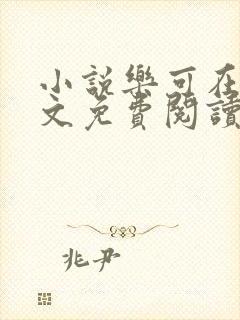 小說樂可在
文免費閱讀
兆尹